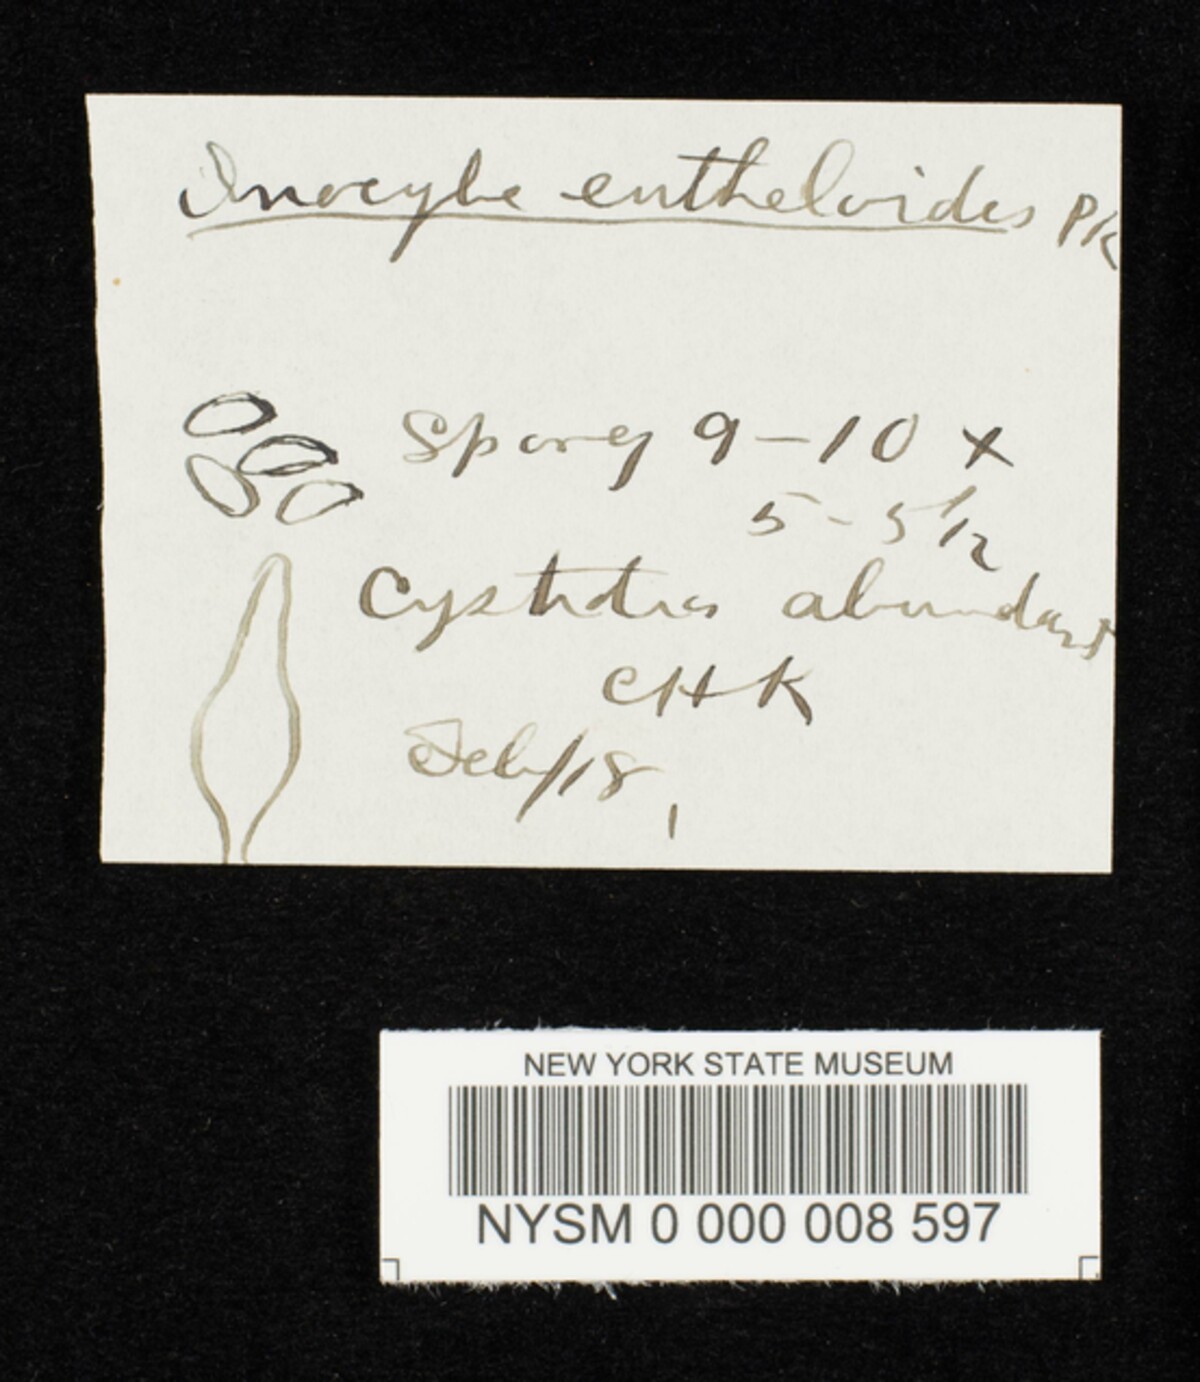 Inocybe eutheloides Pk
Spores 9-10 x
5-5 1/2
Cystidia abundant
CHK
Feb/18
NEW YORK STATE MUSEUM
NYSM 0 000 008 597